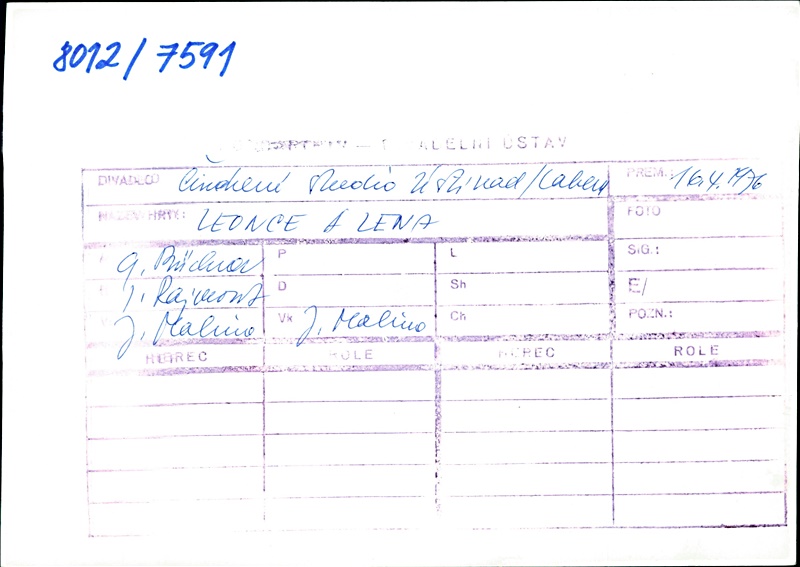 8012/7591
ÚSTAV
DIVADLO Činoherní studio Ústí nad/Labem PREM.: 16.4.1976
NÁZEV HRY: LEONCE A LENA FOTO
G. Büchner P L SIG.:
I. Rajmont D Sh E/
J. Malina Vk J. Malina Ch POZN.:
HEREC ROLE HEREC ROLE